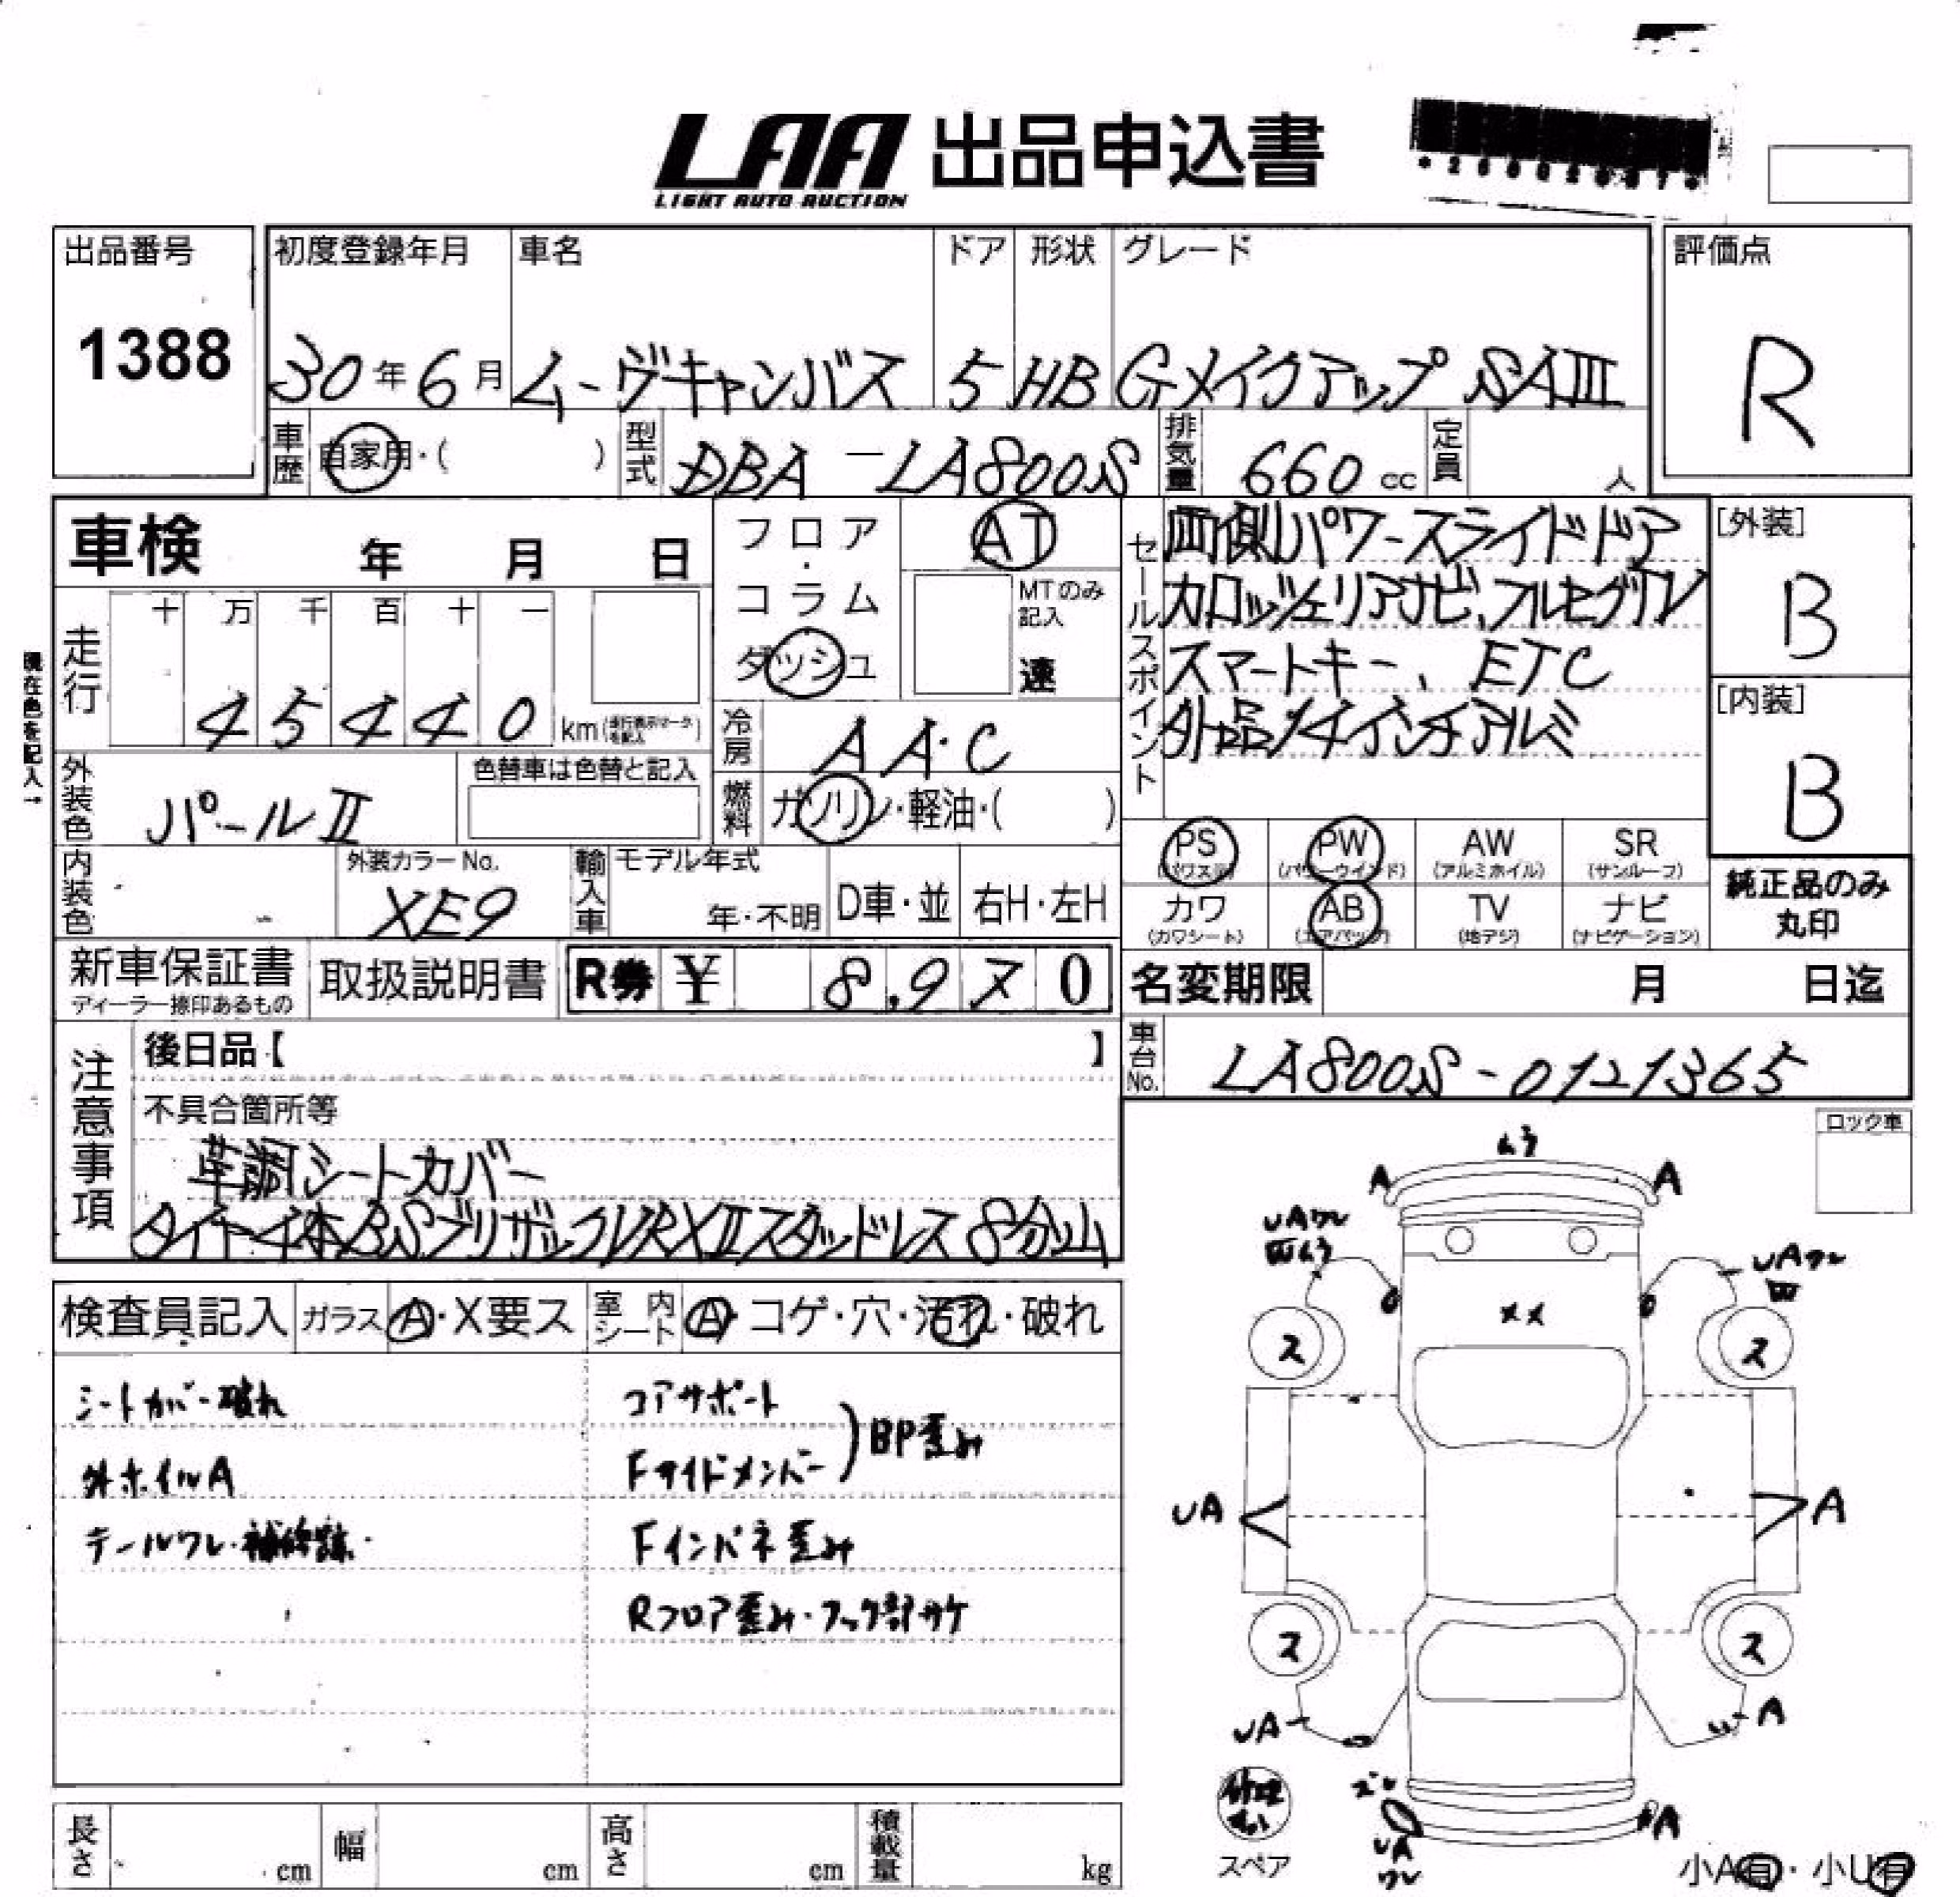 LAA 出品申込書
LIGHT AUTO AUCTION
出品番号 初度登録年月 車名 ドア 形状 グレード 評価点
1388 30年6月 ムーヴキャンバス 5 HB GメイクアップSAIII R
車歴 自家用・( ) 型式 DBA-LA800S 排気量 660cc 定員 人
車検 年 月 日
フロア・コラム ダッシュ
AT
MTのみ記入
速
セールスポイント
両側パワースライドドア
カロッツェリアナビ、フルセグTV
スマートキー、ETC
外品14インチアルミ
[外装]
B
[内装]
B
現在色を記入→
走行 十 万 千 百 十 一
45440 km
冷房 AAC
燃料 ガソリン・軽油・( )
外装色 パールII 色替車は色替と記入
内装色 外装カラーNo. XE9 輸入車 モデル年式 年・不明 D車・並 右H・左H
PS (パワステ) PW (パワーウインド) AW (アルミホイル) SR (サンルーフ)
カワ (カワシート) AB (エアバッグ) TV (地デジ) ナビ (ナビゲーション)
純正品のみ
丸印
新車保証書 ディーラー捺印あるもの 取扱説明書 R券 ¥ 8,970
名変期限 月 日迄
車台No. LA800S-0121365
注意事項
後日品【 】
不具合箇所等
革調シートカバー
タイヤ4本BSブリザックVRXIIスタッドレス8分山
ロック車
検査員記入 ガラス A・X要ス 室内シート A・コゲ・穴・汚れ・破れ
シートカバー破れ
外ホイルA
テールワレ・補修跡
コアサポート
Fサイドメンバー
BP歪み
Fインパネ歪み
Rフロア歪み・フック部サケ
ムラ
A A
UAワレ
UAワレ
××
ス ス
UA A
ス ス
UA A
ズレ
UA
ワレ
A
スペア
小A有・小U有
長さ cm 幅 cm 高さ cm 積載量 kg